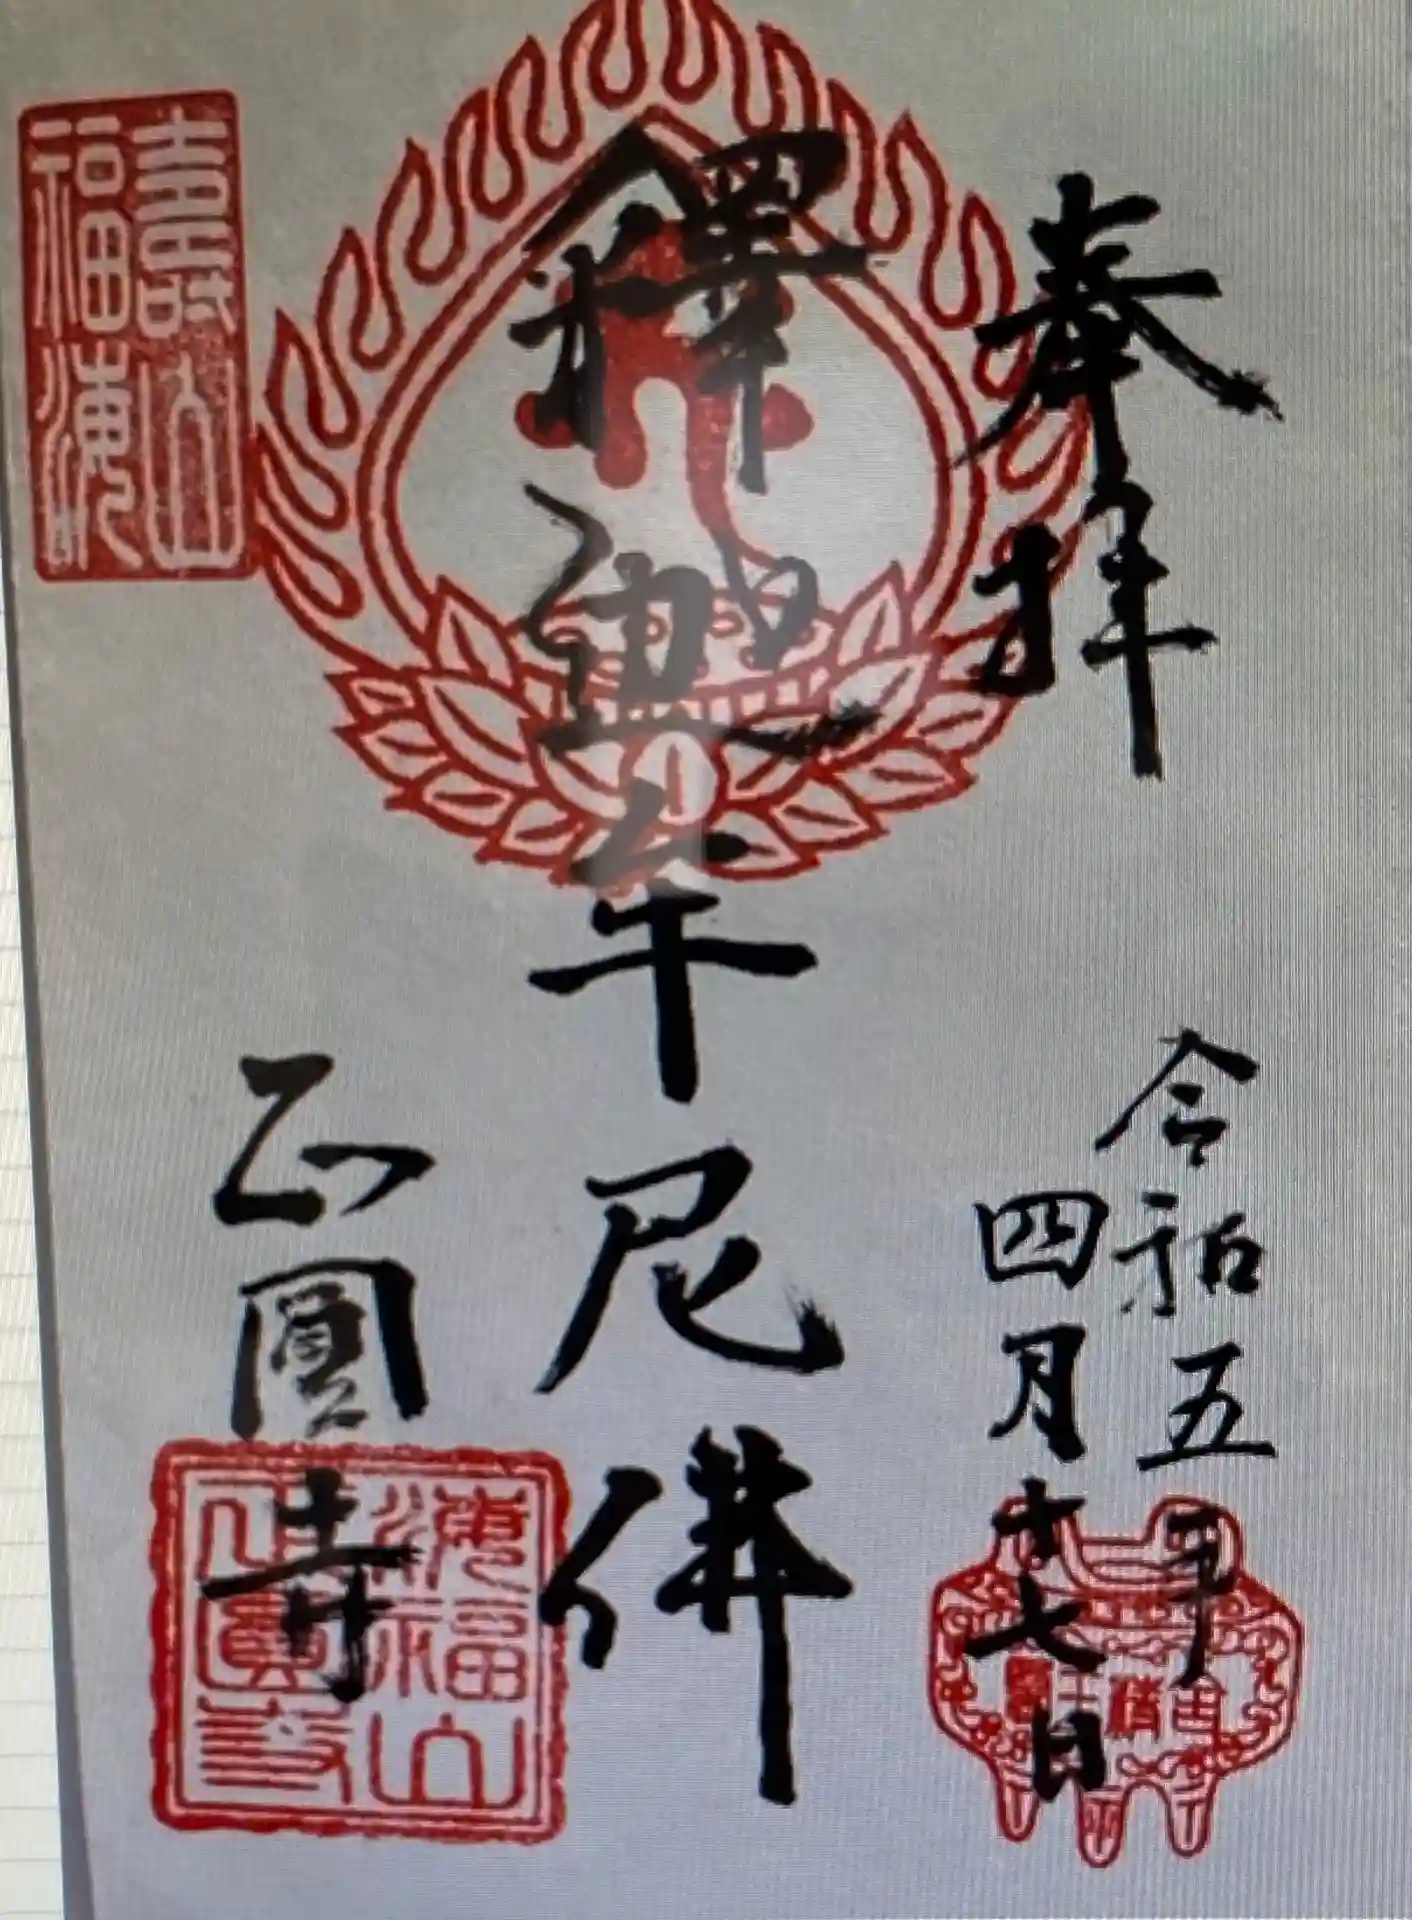 奉拝
令和五年
四月十七日
釋迦牟尼佛
正圓寺
海福山
正圓寺
壽山
福海